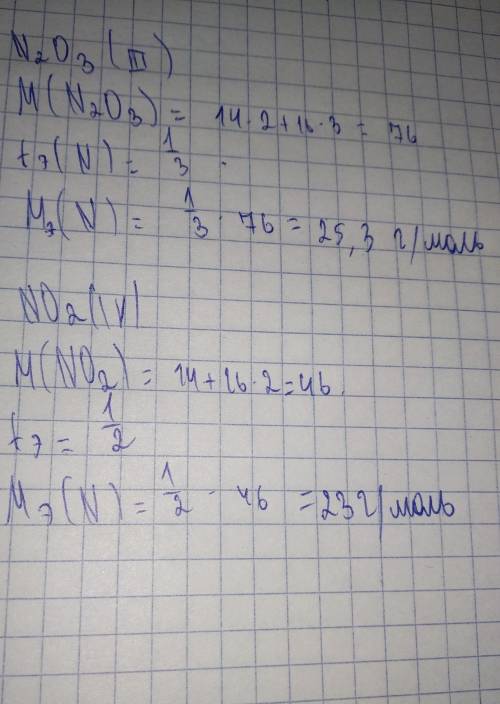 N₂O₃ (III)
M(N₂O₃) = 14·2+16·3 = 76
fэ(N) = 1/3 ·
Mэ(N) = 1/3 · 76 = 25,3 г/моль
NO₂(IV)
M(NO₂) = 14+16·2=46.
fэ = 1/2
Mэ(N) = 1/2 · 46 = 23 г/моль